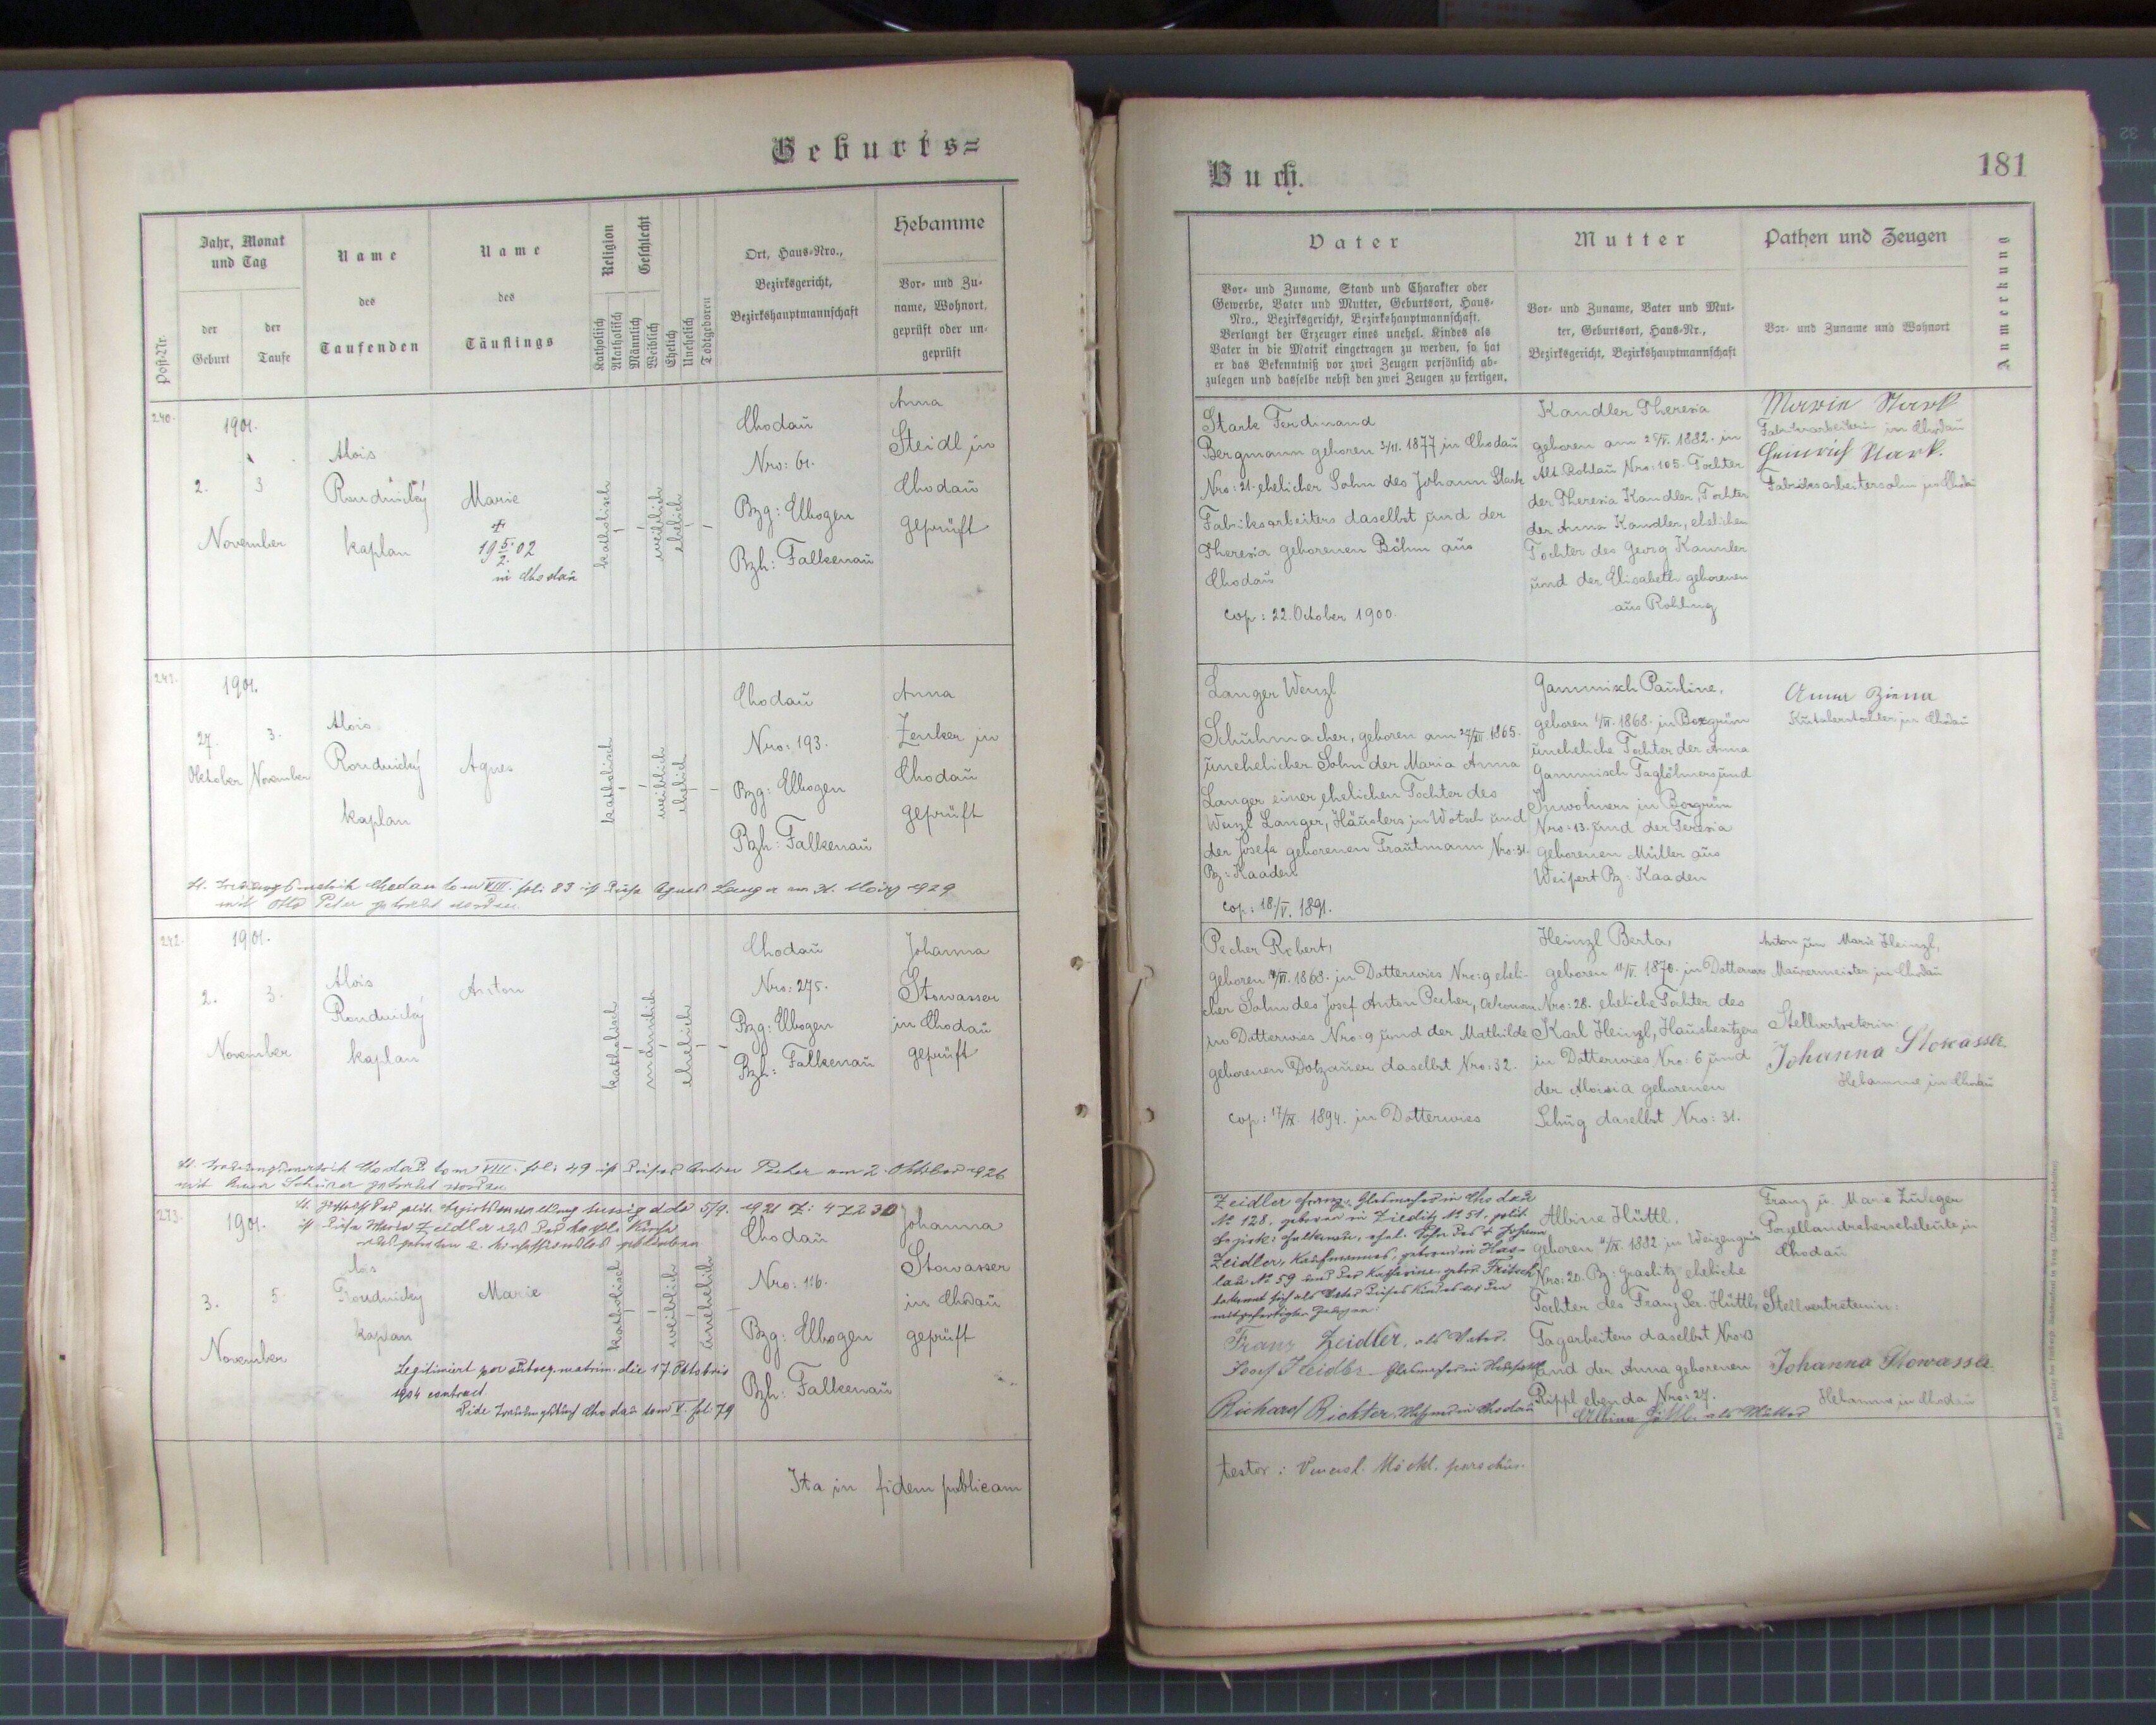 Geburts=
Post-Nr.
Jahr, Monat
und Tag
der
Geburt
der
Taufe
Name
des
Taufenden
Name
des
Täuflings
Religion
Katholisch
Akatholisch
Geschlecht
Männlich
Weiblich
Ehelich
Unehelich
Todtgeboren
Ort, Haus-Nro.,
Bezirksgericht,
Bezirkshauptmannschaft
Hebamme
Vor- und Zu-
name, Wohnort,
geprüft oder un-
geprüft
240.
1901.
2.
3
November
Alois
Roudnický
kaplan
Marie
19 5./2. 02
in Chodau
katholisch
weiblich
ehelich
Chodau
Nro: 61.
Bzg: Elbogen
Bzh: Falkenau
Anna
Steidl in
Chodau
geprüft
241.
1901.
27.
Oktober
3.
November
Alois
Roudnický
kaplan
Agnes
katholisch
weiblich
ehelich
Chodau
Nro: 193.
Bzg: Elbogen
Bzh: Falkenau
Anna
Zenker in
Chodau
geprüft
lt. Trauungsmatrik Chodau tom VIII. fol: 83 ist diese Agnes Langer am 31. März 1929
mit Otto Peter getraut worden.
242.
1901.
2.
3.
November
Alois
Roudnický
kaplan
Anton
katholisch
männlich
ehelich
Chodau
Nro: 275.
Bzg: Elbogen
Bzh: Falkenau
Johanna
Stowasser
in Chodau
geprüft
lt. Trauungsmatrik Chodau tom VIII. fol: 49 ist dieser Anton Pecher am 2. Oktober 1926
mit Anna getraut worden
243.
1901.
lt. der polit. 5/9. 1921 Z: 47230
ist diese Marie Zeidler aus der kathol. Kirche
3.
5.
November
Alois
Roudnický
kaplan
Marie
katholisch
weiblich
unehelich
Chodau
Nro: 116.
Bzg: Elbogen
Bzh: Falkenau
Johanna
Stowasser
in Chodau
geprüft
Legitimiert per subseq. matrim. die 17. Oktobris
1904 contract.
Vide Trauungsbuch Chodau tom V. fol: 79
Ita in fidem publicam
Buch.
181
Vater
Vor- und Zuname, Stand und Charakter oder
Gewerbe, Vater und Mutter, Geburtsort, Haus-
Nro., Bezirksgericht, Bezirkshauptmannschaft.
Verlangt der Erzeuger eines unehel. Kindes als
Vater in die Matrik eingetragen zu werden, so hat
er das Bekenntniß vor zwei Zeugen persönlich ab-
zulegen und dasselbe nebst den zwei Zeugen zu fertigen.
Mutter
Vor- und Zuname, Vater und Mut-
ter, Geburtsort, Haus-Nr.,
Bezirksgericht, Bezirkshauptmannschaft
Pathen und Zeugen
Vor- und Zuname und Wohnort
Anmerkung
Stark Ferdinand
Bergmann geboren 1877 in Chodau
Nro: 21. ehelicher Sohn des Johann Stark
Fabriksarbeiters daselbst und der
Theresia geborenen Böhm aus
Chodau
cop: 22. October 1900.
Kandler Theresia
geboren am 1882. in
Alt Rohlau Nro: 105. Tochter
der Theresia Kandler, Tochter
der Anna Kandler, ehelichen
Tochter des Georg Kannler
und der Elisabeth geborenen
aus Rohling
Marie Stark
Fabriksarbeiterin in Chodau
Heinrich Stark.
Fabriksarbeitersohn in Chodau
Langer Wenzl
Schuhmacher, geboren am 27/XII. 1865.
unehelicher Sohn der Maria Anna
Langer einer ehelichen Tochter des
Wenzl Langer, Häuslers in Wotsch und
der Josefa geborenen Trautmann Nro: 31.
Bz: Kaaden
cop: 18/V. 1891.
Gammisch Pauline,
geboren 1868. in Boxgrün
uneheliche Tochter der Anna
Gammisch Taglöhners und
Inwohners in Boxgrün
Nro: 13. und der Teresia
geborenen Müller aus
Weipert Bz: Kaaden
Anna Ziener
in Chodau
Pecher Robert,
geboren 1868. in Dotterwies Nro: 9 eheli-
cher Sohn des Josef Anton Pecher, Oekonom
in Dotterwies Nro: 9 und der Mathilde
geborenen Dotzauer daselbst Nro: 32.
cop: 17/IX. 1894. in Dotterwies
Heinzl Berta,
geboren 11/IV. 1870. in Dotterwies
Nro: 28. eheliche Tochter des
Karl Heinzl, Hausbesitzers
in Dotterwies Nro: 6 und
der Aloisia geborenen
Schug daselbst Nro: 31.
Anton und Marie Heinzl,
Maurermeister in Chodau
Stellvertreterin:
Johanna Stowasser
Hebamme in Chodau
Zeidler Franz, Glasmacher in Chodau
No 128, geboren in Zieditz No 51, polit.
Bezirk: Falkenau, ehel. Sohn des † Johann
Zeidler, Kaufmannes, geboren in Has-
lau No 59 und der Katharina gebor. Fritsch
bekennt sich als Vater dieses Kindes vor den
mitgefertigten Zeugen:
Franz Zeidler, als Vater.
Josef Zeidler
Richard Richter, in Chodau
Albine Hüttl,
geboren 1882 in
Nro: 20. Bz: Graslitz eheliche
Tochter des Franz Ser. Hüttl
Tagarbeiters daselbst Nro:
und der Anna geborenen
Rippl ebenda Nro: 27.
Albina Hüttl, als Mutter
Franz u. Marie Zuleger
Porzellandreherseheleute in
Chodau
Stellvertreterin:
Johanna Stowasser
Hebamme in Chodau
testor: Vencesl. Möckl. parochus.